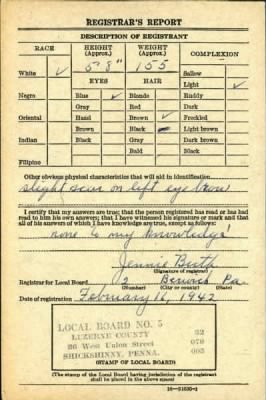 REGISTRAR'S REPORT
DESCRIPTION OF REGISTRANT
RACE HEIGHT (Approx.) WEIGHT (Approx.) COMPLEXION
5' 8" 155
White ✓ Sallow
EYES HAIR Light ✓
Negro Blue ✓ Blonde Ruddy
Gray Red Dark
Oriental Hazel Brown ✓ Freckled
Brown Black Light brown
Indian Black Gray Dark brown
Bald Black
Filipino
Other obvious physical characteristics that will aid in identification
slight scar on left eye brow
I certify that my answers are true; that the person registered has read or has had
read to him his own answers; that I have witnessed his signature or mark and that
all of his answers of which I have knowledge are true, except as follows:
none to my knowledge
Jennie
(Signature of registrar)
Registrar for Local Board 5 Berwick Pa.
(Number) (City or county) (State)
Date of registration February 16, 1942
LOCAL BOARD NO. 5 32
LUZERNE COUNTY 079
26 West Union Street 005
SHICKSHINNY, PENNA.
(STAMP OF LOCAL BOARD)
(The stamp of the Local Board having jurisdiction of the registrant
shall be placed in the above space)